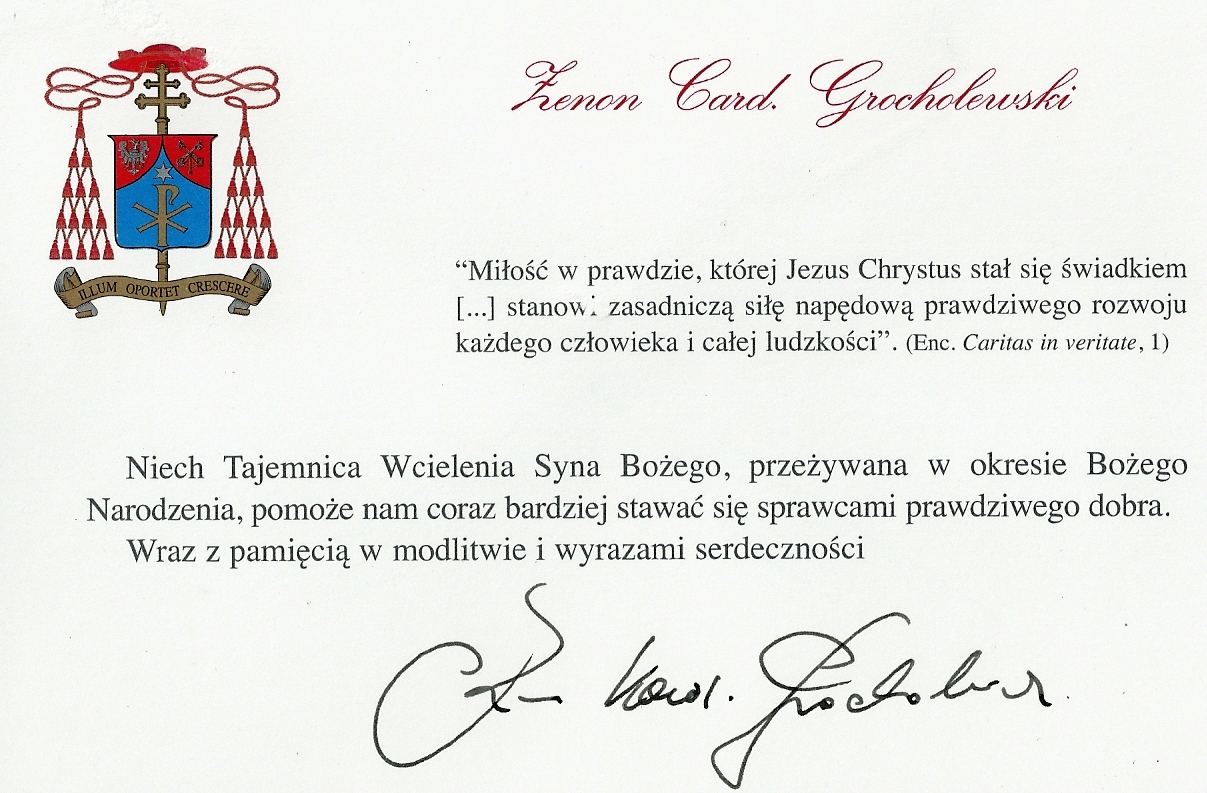 Zenon Card. Grocholewski
ILLUM OPORTET CRESCERE
“Miłość w prawdzie, której Jezus Chrystus stał się świadkiem
[...] stanowi zasadniczą siłę napędową prawdziwego rozwoju
każdego człowieka i całej ludzkości”. (Enc. Caritas in veritate, 1)
Niech Tajemnica Wcielenia Syna Bożego, przeżywana w okresie Bożego
Narodzenia, pomoże nam coraz bardziej stawać się sprawcami prawdziwego dobra.
Wraz z pamięcią w modlitwie i wyrazami serdeczności